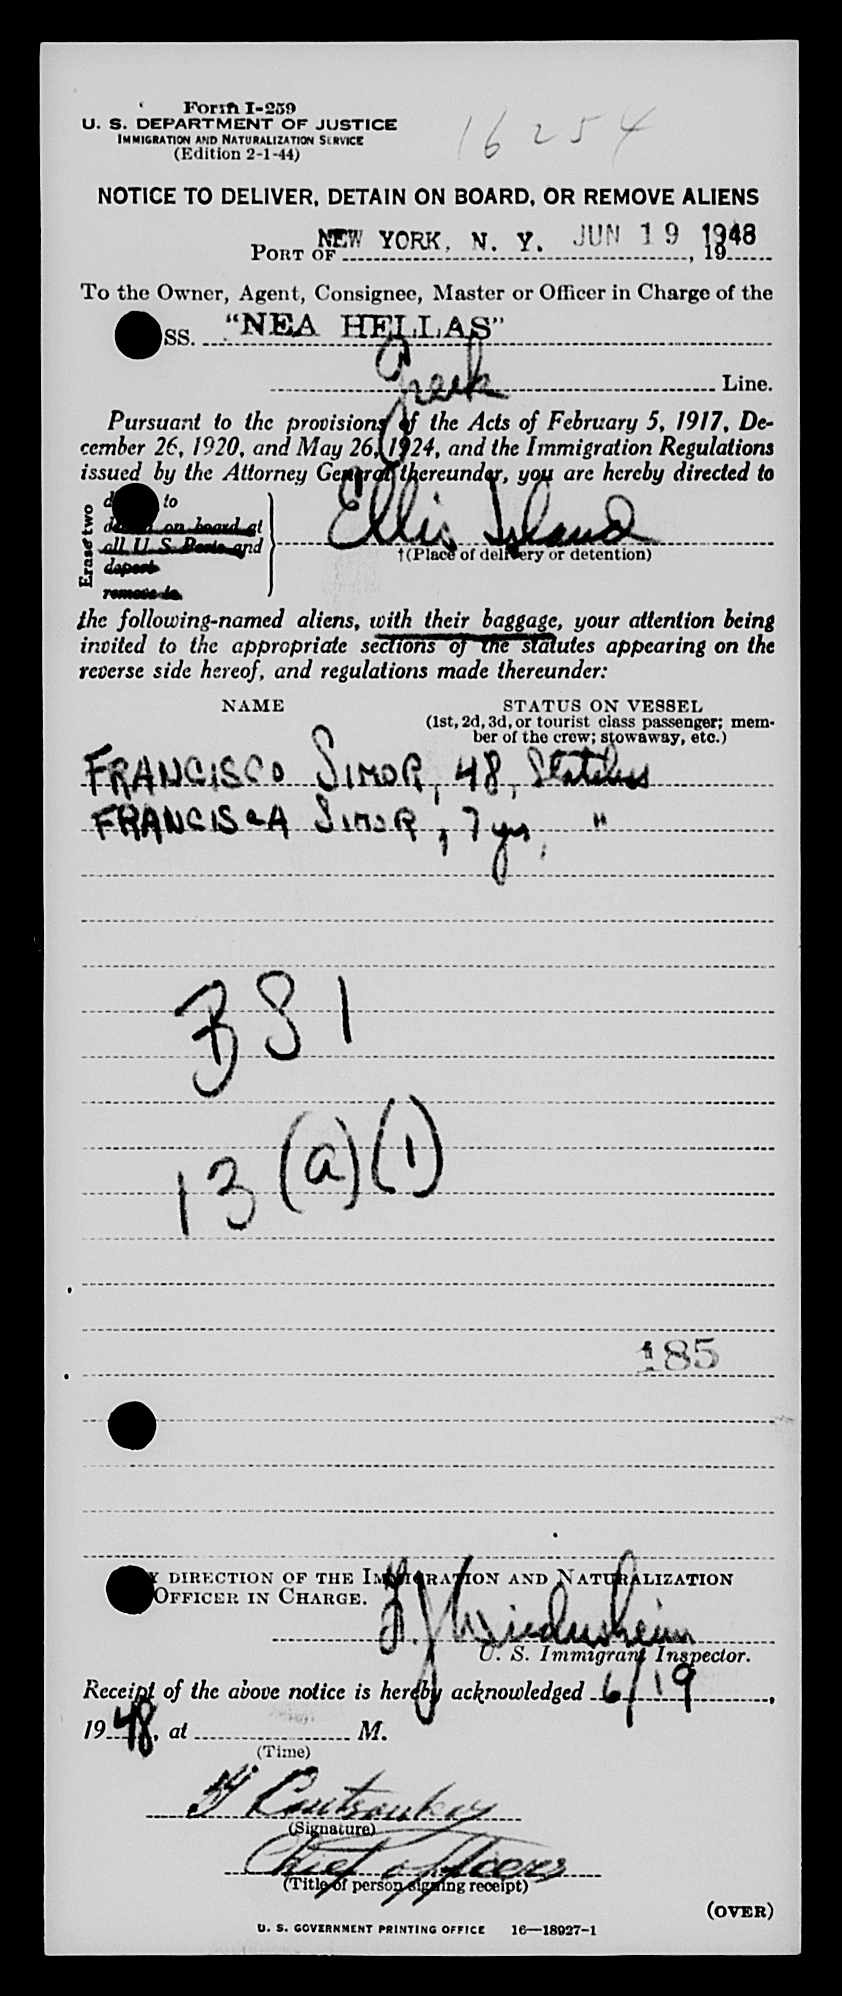 Form I-259
U. S. DEPARTMENT OF JUSTICE
IMMIGRATION AND NATURALIZATION SERVICE
(Edition 2-1-44)
16254
NOTICE TO DELIVER, DETAIN ON BOARD, OR REMOVE ALIENS
PORT OF NEW YORK, N. Y. JUN 19 1948, 19
To the Owner, Agent, Consignee, Master or Officer in Charge of the
SS. "NEA HELLAS"
Greek Line.
Pursuant to the provisions of the Acts of February 5, 1917, De-
cember 26, 1920, and May 26, 1924, and the Immigration Regulations
issued by the Attorney General thereunder, you are hereby directed to
Erase two
to
on board at
all U S Ports and
deport
remove to
Ellis Island
†(Place of delivery or detention)
the following-named aliens, with their baggage, your attention being
invited to the appropriate sections of the statutes appearing on the
reverse side hereof, and regulations made thereunder:
NAME STATUS ON VESSEL
(1st, 2d, 3d, or tourist class passenger; mem-
ber of the crew; stowaway, etc.)
FRANCISCO SIMOR, 48, Stateless
FRANCISCA SIMOR, 7 yrs, "
BSI
13 (a) (1)
185
DIRECTION OF THE IMMIGRATION AND NATURALIZATION
OFFICER IN CHARGE.
U. S. Immigrant Inspector.
Receipt of the above notice is hereby acknowledged 6/19,
1948, at M.
(Time)
(Signature)
Chief officer
(Title of person signing receipt)
(OVER)
U. S. GOVERNMENT PRINTING OFFICE 16—18927-1